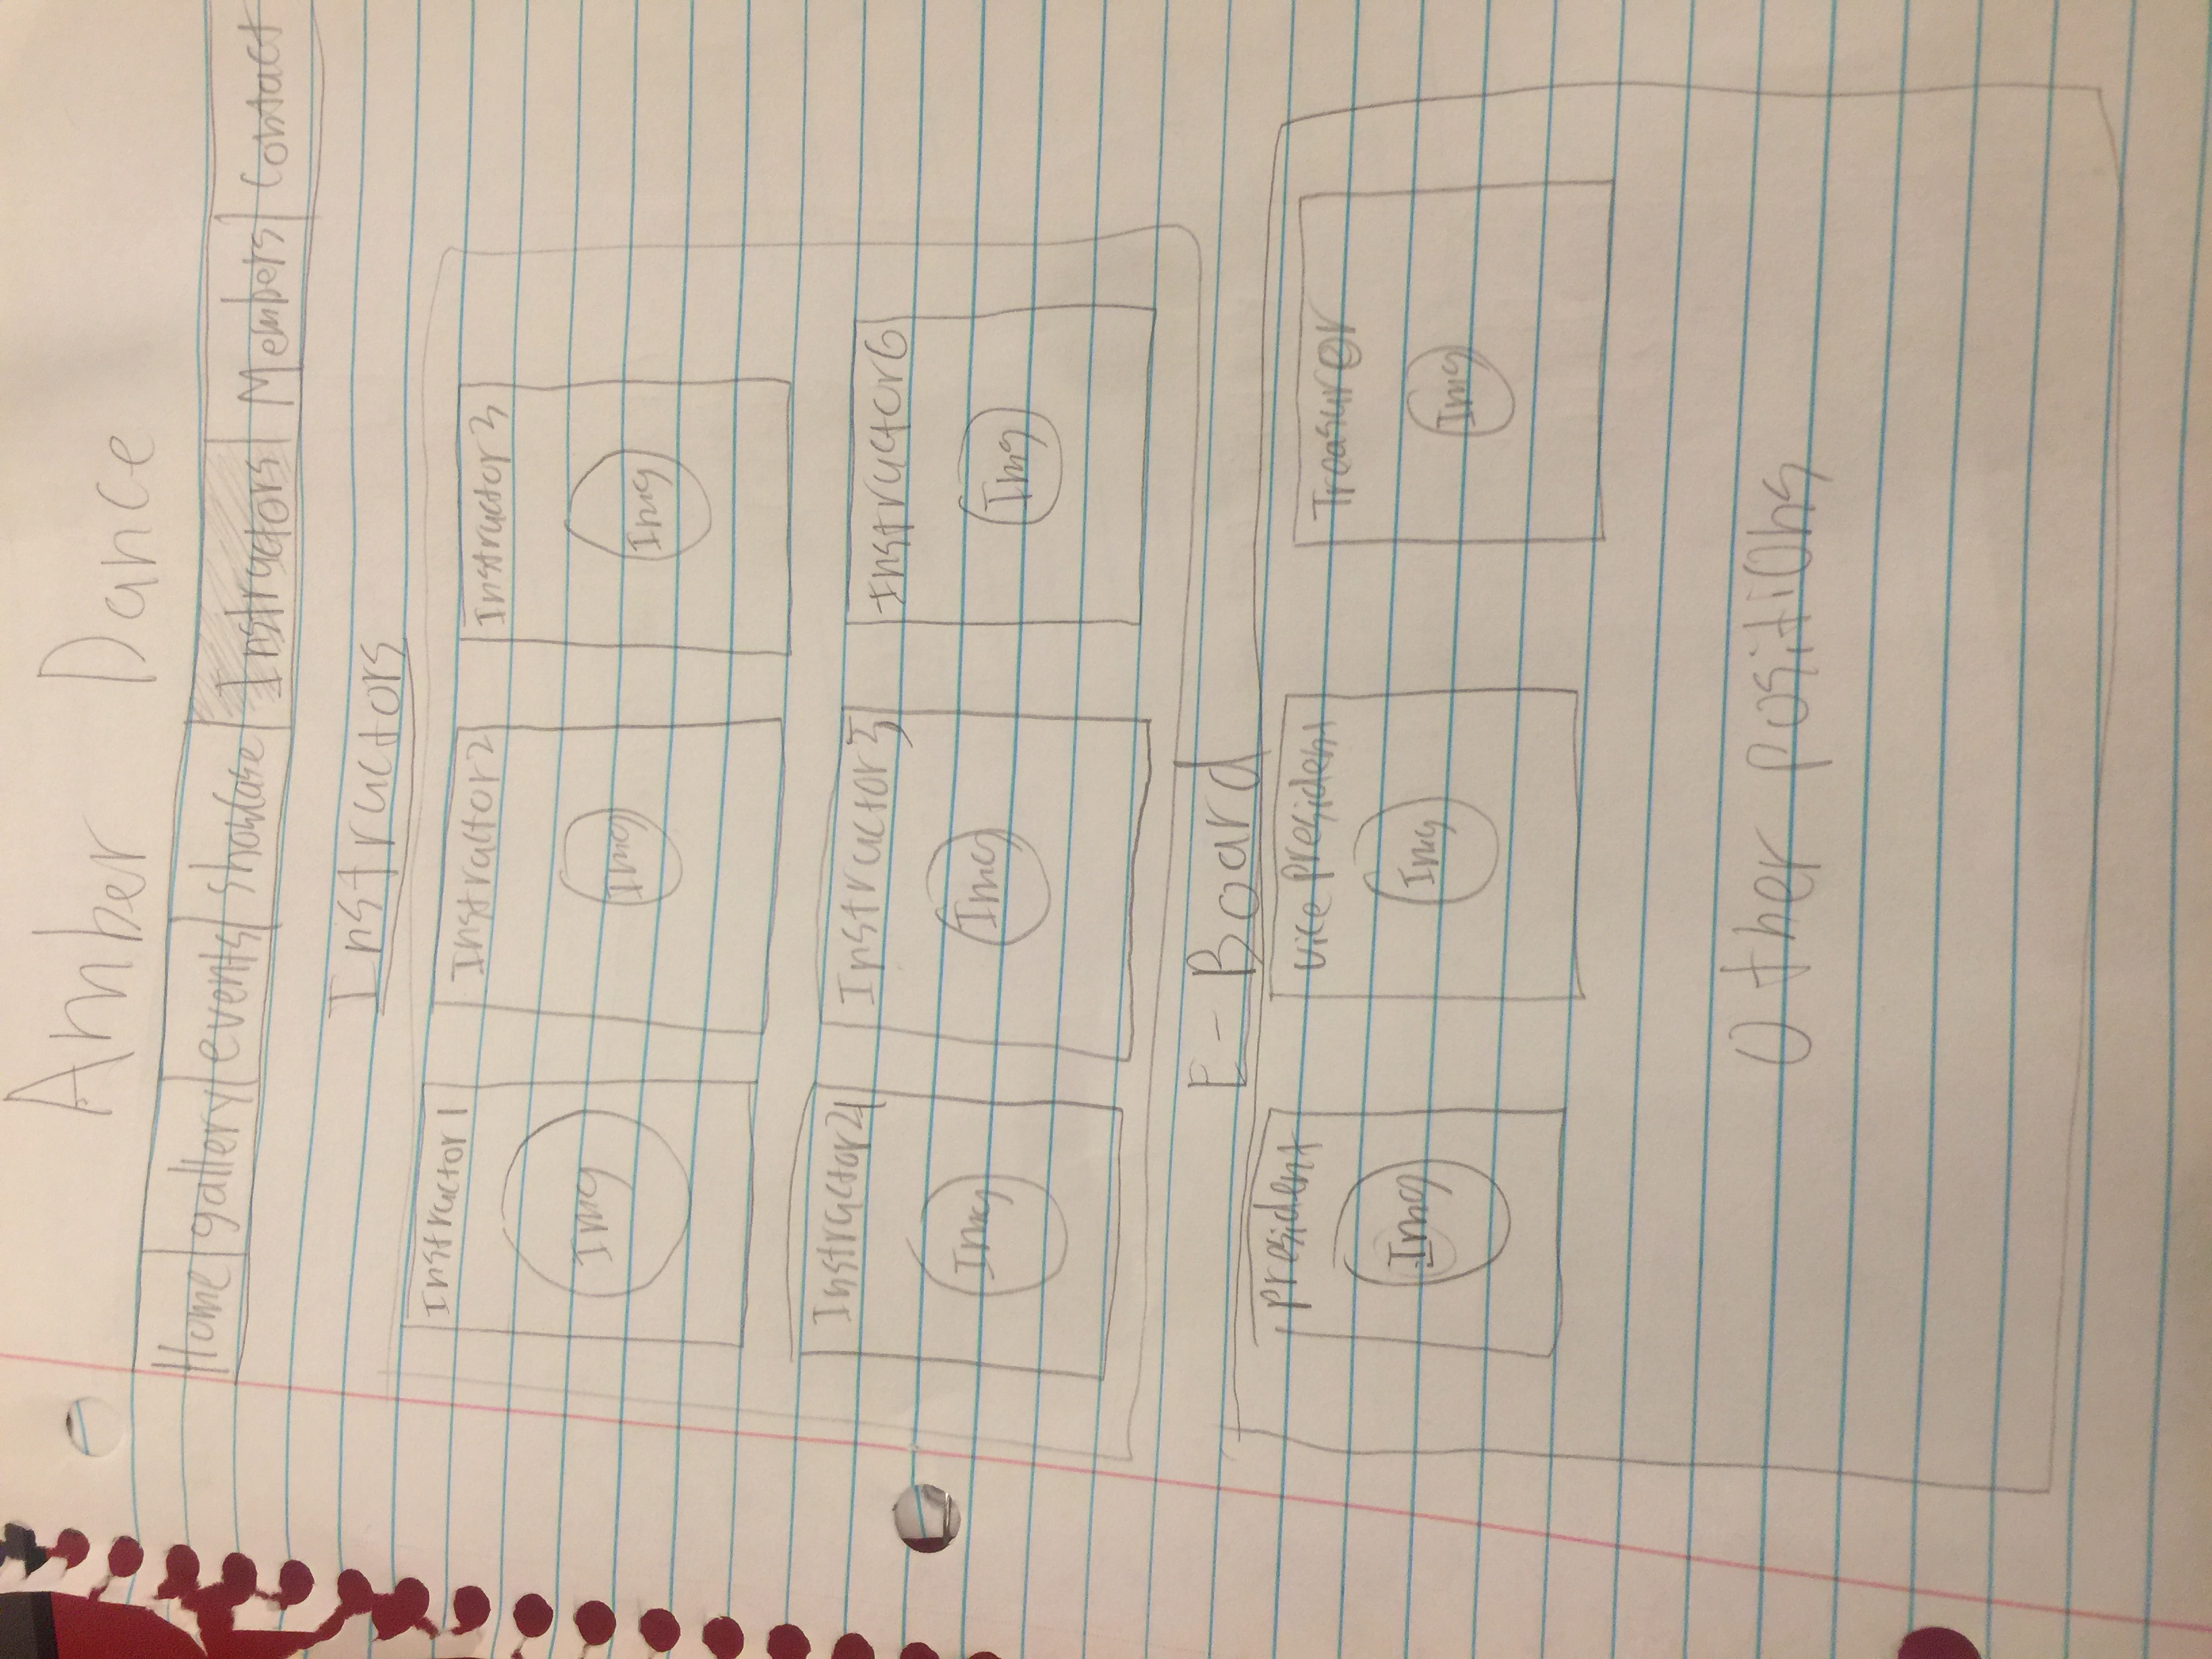 Amber Dance
Home gallery events Showcase Instructors Members Contact
Instructors
Instructor 1 Instructor 2 Instructor 3
Img Img Img
Instructor 4 Instructor 5 Instructor 6
Img Img Img
E-Board
president vice president Treasurer
Img Img Img
Other positions